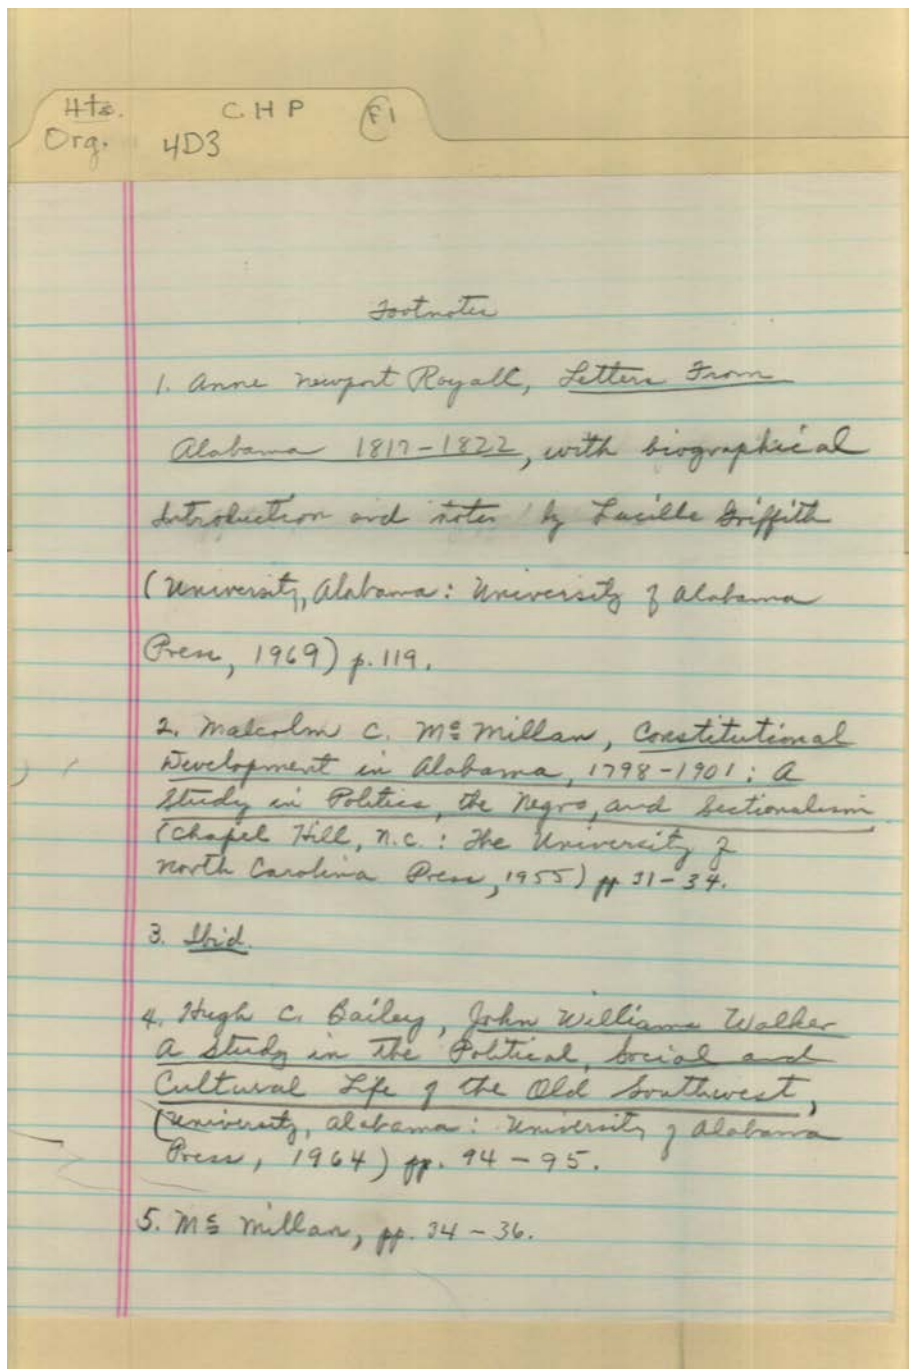 Hts. CHP F1
Org. 4D3
Footnotes
1. Anne Newport Royall, Letters From
Alabama 1817-1822, with biographical
Introduction and notes by Lucille Griffith
(University, Alabama: University of Alabama
Press, 1969) p. 119.
2. Malcolm C. Mc Millan, Constitutional
Development in Alabama, 1798-1901: A
Study in Politics, the Negro, and Sectionalism
(Chapel Hill, N.C.: The University of
North Carolina Press, 1955) pp 31-34.
3. Ibid.
4. Hugh C. Bailey, John Williams Walker
A Study in the Political, Social and
Cultural Life of the Old Southwest,
(University, Alabama: University of Alabama
Press, 1964) pp. 94-95.
5. Mc Millan, pp. 34-36.